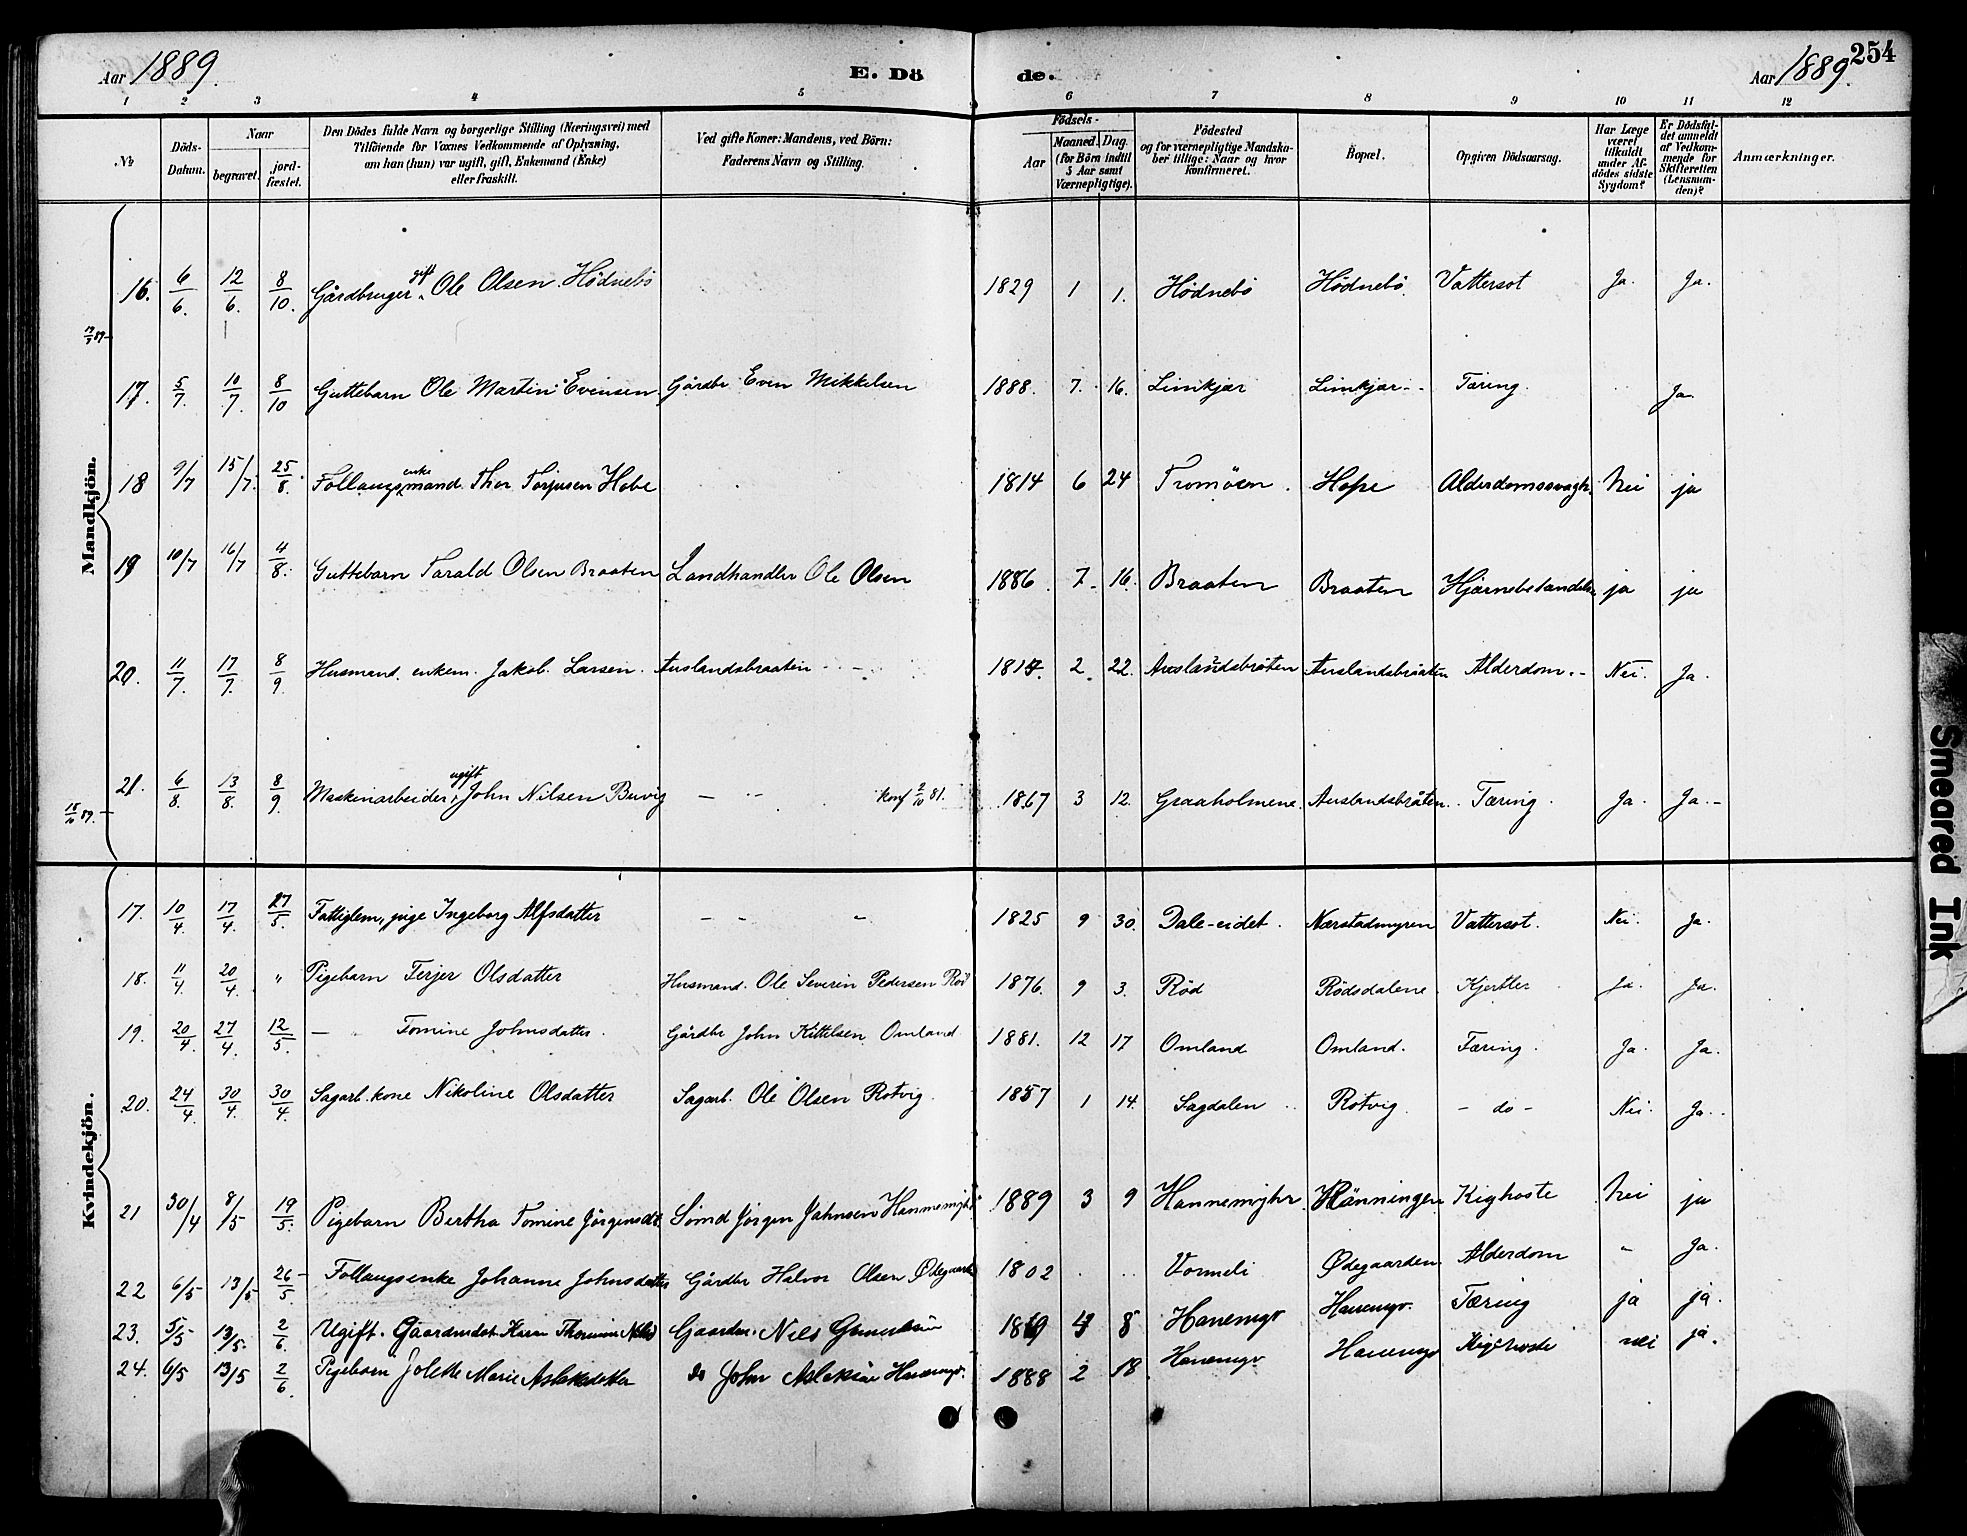 Aar 1889. E. Dö de. Aar 1889. 254
1 2 3 4 5 6 7 8 9 10 11 12
№ Döds-Datum. Naar begravet. jordfæstet. Den Dödes fulde Navn og borgerlige Stilling (Næringsvei) med Tilföiende for Voxnes Vedkommende af Oplysning, om han (hun) var ugift, gift, Enkemand (Enke) eller fraskilt. Ved gifte Koner: Mandens, ved Börn: Faderens Navn og Stilling. Födsels- Aar Maaned. Dag. (for Börn indtil 5 Aar samt Værnepligtige). Födested og for værnepligtige Mandskaber tillige: Naar og hvor konfirmeret. Bopæl. Opgiven Dödsaarsag. Har Læge været tilkaldt under Afdödes sidste Sygdom? Er Dödsfaldet anmeldt af Vedkommende for Skifteretten (Lensmanden)? Anmærkninger.
Mandkjön.
16. 6/6. 12/6. 8/10. Gårdbruger gift Ole Olsen Hödnebö 1829 1 1. Hödnebö Hödnebö. Vattersot Ja. Ja.
17. 5/7. 10/7. 8/10 Guttebarn Ole Martin Evensen Gårdbr Even Mikkelsen 1888. 7. 16. Limkjær Limkjær Tæring. Ja
18 9/7 15/7. 25/8. Follaugsenkemand Thor Torjusen Hobe 1814 6 24 Tromöen. Hope Alderdomssvagh. Nei ja
19 10/7 16/7 4/8. Guttebarn Tarald Olsen Braaten Landhandler Ole Olsen 1886. 7. 16. Braaten Braaten Hjærnebetændelse ja ja
20. 11/7. 17/7. 8/9. Husmand. enkem. Jakob Larsen. Auslandsbraaten 1814. 2. 22. Auslandsbråten Auslandsbråten Alderdom.- Nei. Ja.
21. 6/8. 13/8. 8/9. Maskinarbeider, ugift John Nilsen Buvig — konf 2/10 81. 1867 3 12. Graaholmene. Auslandsbråten. Tæring. Ja. Ja.-
Kvindekjön.
17. 10/4. 17/4. 27/5. Fattiglem, pige Ingeborg Alfsdatter 1825 9 30. Dale-eidet. Nærstadmyren Vattersot. Nei. Ja.
18. 11/4. 20/4. " Pigebarn Terjer Olsdatter Husmand. Ole Severin Pedersen Röd 1876. 9 3. Röd Rödsdalene. Kjertler Ja. Ja.
19. 20/4. 27/4. 12/5. — Tomine Johnsdatter. Gårdbr John Kittelsen Omland 1881. 12 17 Omland Omland. Tæring. Ja. Ja.
20. 24/4. 30/4. 30/4. Sagarb. kone Nikoline Olsdatter Sagarb. Ole Olsen Rotvig. 1857 1 14. Sagdalen Rotvig. - do - Nei. Ja.
21 30/4 8/5 19/5. Pigebarn Bertha Tomine Jörgensdt. Sömd Jörgen Jahnsen Hannemyhr 1889 3 9 Hannemyhr Kighoste Nei ja
22 6/5 13/5 26/5. Follaugsenke Johanne Johnsdatter Gårdbr Halvor Olsen Ødegaarden 1802 Vormeli Ødegaarden. Alderdom " Ja.
23. 5/5 13/5. 2/6. Ugift. Karen Gaardm. Nils 8 Hanemyr Hanemyr. Tæring ja ja.
24. 6/5 13/5 2/6. Pigebarn Marie do John Aslaksen Hanemyr. 1888 2 18 Hanemyr Hanemyr nei ja.
Smeared Ink